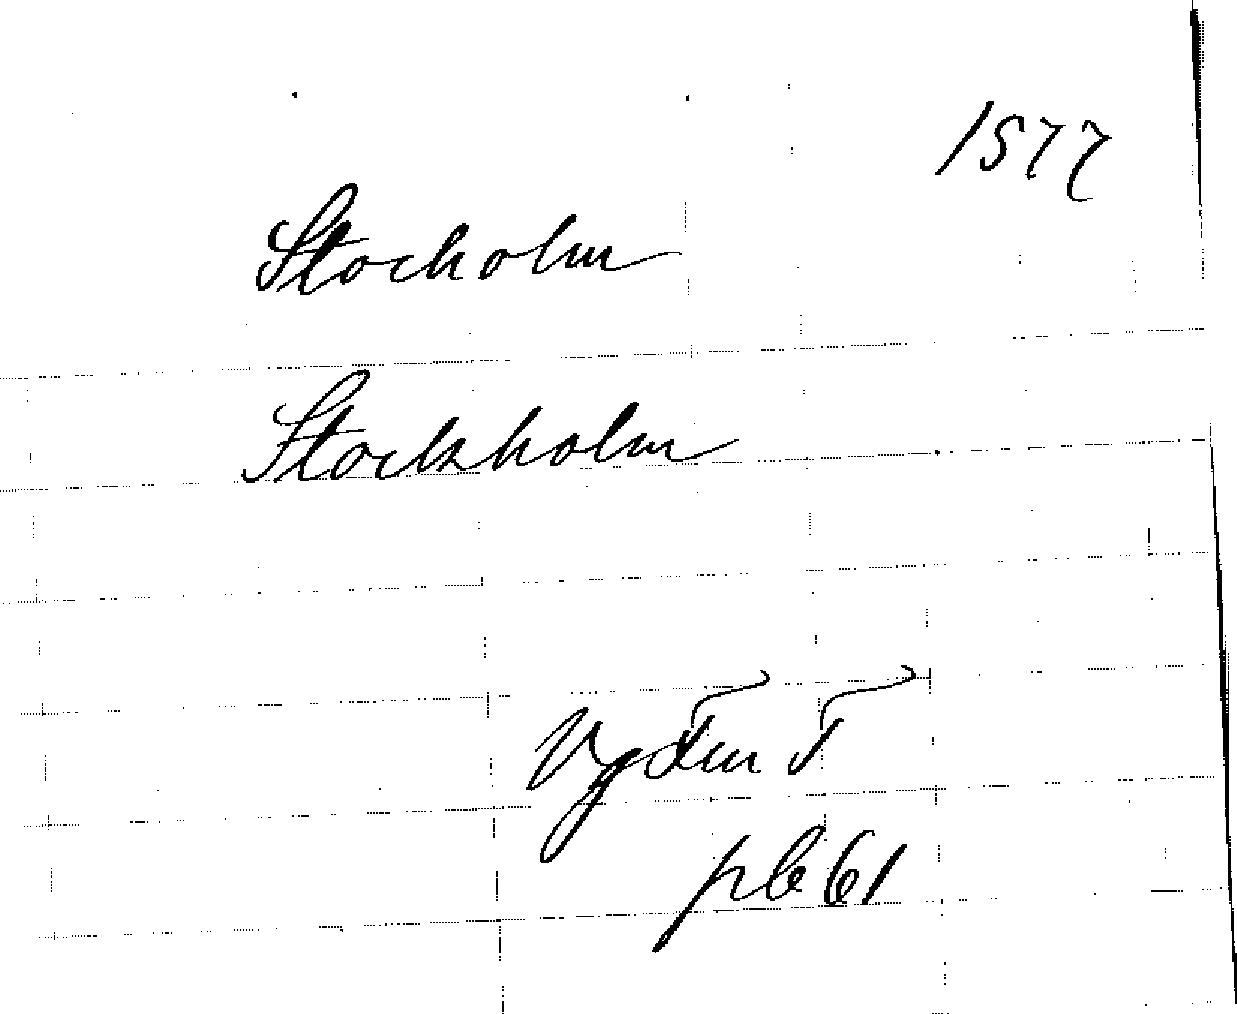 1577
Stocholm
Stockholm
pb 61